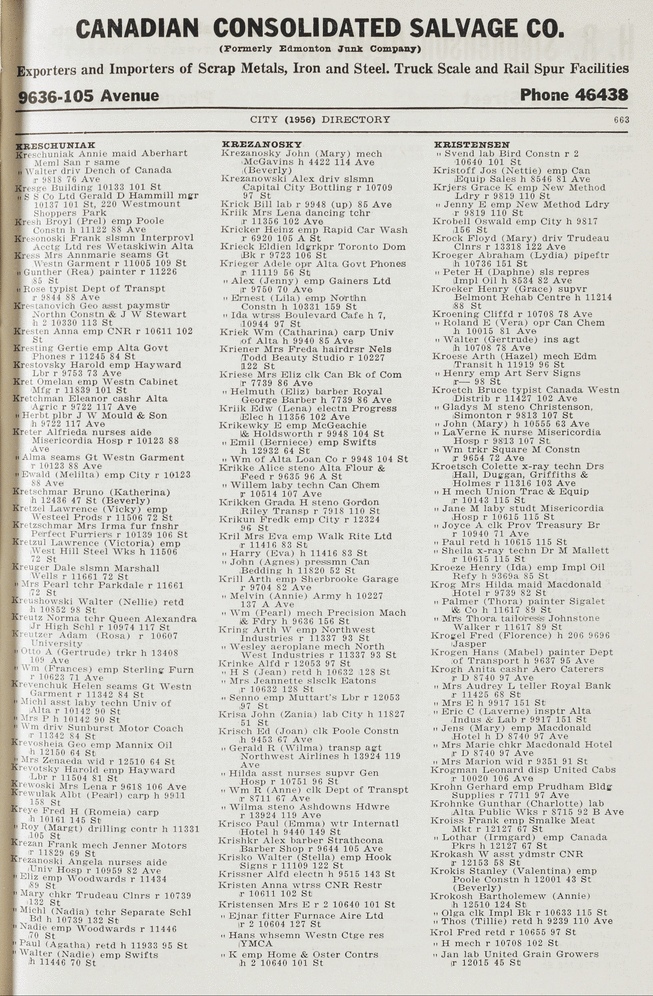 CANADIAN CONSOLIDATED SALVAGE CO.
(Formerly Edmonton Junk Company)
Exporters and Importers of Scrap Metals, Iron and Steel. Truck Scale and Rail Spur Facilities
9636-105 Avenue Phone 46438
CITY (1956) DIRECTORY 663
KRESCHUNIAK
Kreschuniak Annie maid Aberhart
Meml San r same
" Walter driv Pench of Canada
r 9818 76 Ave
Kresge Building 10133 101 St
" S S Co Ltd Gerald D Hammill mgr
10137 101 St, 220 Westmount
Shoppers Park
Kresh Broyl (Prel) emp Poole
Constn h 11122 88 Ave
Kresonoski Frank slsmn Interprovl
Acctg Ltd res Wetaskiwin Alta
Kress Mrs Annmarie seams Gt
Westn Garment r 11005 109 St
" Gunther (Rea) painter r 11226
85 St
" Rose typist Dept of Transpt
r 9844 88 Ave
Krestanovich Geo asst paymstr
Northn Constn & J W Stewart
h 2 10330 113 St
Kresten Anna emp CNR r 10611 102
St
Kresting Gertie emp Alta Govt
Phones r 11245 84 St
Krestovsky Harold emp Hayward
Lbr r 9753 73 Ave
Kret Omelan emp Westn Cabinet
Mfg r 11839 101 St
Kretchman Eleanor cashr Alta
Agric r 9722 117 Ave
" Herbt plbr J W Mould & Son
h 9722 117 Ave
Kreter Alfrieda nurses aide
Misericordia Hosp r 10123 88
Ave
" Alma seams Gt Westn Garment
r 10123 88 Ave
" Ewald (Melilta) emp City r 10123
88 Ave
Kretschmar Bruno (Katherina)
h 12436 47 St (Beverly)
Kretzel Lawrence (Vicky) emp
Westeel Prods r 11506 72 St
Kretzschmar Mrs Irma fur fnshr
Perfect Furriers r 10139 106 St
Kretzul Lawrence (Victoria) emp
West Hill Steel Wks h 11506
72 St
Kreuger Dale slsmn Marshall
Wells r 11661 72 St
" Mrs Pearl tchr Parkdale r 11661
72 St
Kreushowski Walter (Nellie) retd
h 10852 98 St
Kreutz Norma tchr Queen Alexandra
Jr High Schl r 10974 117 St
Kreutzer Adam (Rosa) r 10607
University
" Otto A (Gertrude) trkr h 13408
109 Ave
" Wm (Frances) emp Sterling Furn
r 10623 71 Ave
Krevenchuk Helen seams Gt Westn
Garment r 11342 84 St
" Michl asst laby techn Univ of
Alta r 10142 90 St
" Mrs P h 10142 90 St
" Wm driv Sunburst Motor Coach
r 11342 84 St
Krevosheia Geo emp Mannix Oil
h 12150 64 St
" Mrs Zenaeda wid r 12510 64 St
Krevotsky Harold emp Hayward
Lbr r 11504 81 St
Krewoski Mrs Lena r 9618 106 Ave
Krewulak Albt (Pearl) carp h 9911
158 St
Kreye Fred H (Romeia) carp
h 10161 145 St
" Roy (Margt) drilling contr h 11331
105 St
Krezan Frank mech Jenner Motors
r 11829 69 St
Krezanoski Angela nurses aide
Univ Hosp r 10959 82 Ave
" Eliz emp Woodwards r 11434
89 St
" Mary chkr Trudeau Clnrs r 10739
132 St
" Michl (Nadia) tchr Separate Schl
Bd h 10739 132 St
" Nadie emp Woodwards r 11446
70 St
" Paul (Agatha) retd h 11933 95 St
" Walter (Nadie) emp Swifts
h 11446 70 St
KREZANOSKY
Krezanosky John (Mary) mech
McGavins h 4422 114 Ave
(Beverly)
Krezanowski Alex driv slsmn
Capital City Bottling r 10709
97 St
Krick Bill lab r 9948 (up) 85 Ave
Kriik Mrs Lena dancing tchr
r 11356 102 Ave
Kricker Heinz emp Rapid Car Wash
r 6920 105 A St
Krieck Eldien ldgrkpr Toronto Dom
Bk r 9723 106 St
Krieger Adele opr Alta Govt Phones
r 11119 56 St
" Alex (Jenny) emp Gainers Ltd
r 9750 70 Ave
" Ernest (Lila) emp Northn
Constn h 10331 159 St
" Ida wtrss Boulevard Cafe h 7,
10944 97 St
Kriek Wm (Catharina) carp Univ
of Alta h 9940 85 Ave
Kriener Mrs Freda hairdrsr Nels
Todd Beauty Studio r 10227
122 St
Kriese Mrs Eliz clk Can Bk of Com
r 7739 86 Ave
" Helmuth (Eliz) barber Royal
George Barber h 7739 86 Ave
Kriik Edw (Lena) electn Progress
Elec h 11356 102 Ave
Krikewky E emp McGeachie
& Holdsworth r 9948 104 St
" Emil (Berniece) emp Swifts
h 12932 64 St
" Wm of Alta Loan Co r 9948 104 St
Krikke Alice steno Alta Flour &
Feed r 9635 96 A St
" Willem laby techn Can Chem
r 10514 107 Ave
Krikken Grada H steno Gordon
Riley Transp r 7918 110 St
Krikun Fredk emp City r 12324
96 St
Kril Mrs Eva emp Walk Rite Ltd
r 11416 83 St
" Harry (Eva) h 11416 83 St
" John (Agnes) pressmn Can
Bedding h 11820 52 St
Krill Arth emp Sherbrooke Garage
r 9704 82 Ave
" Melvin (Annie) Army h 10227
137 A Ave
" Wm (Pearl) mech Precision Mach
& Fdry h 9636 156 St
Kring Arth W emp Northwest
Industries r 11337 93 St
" Wesley aeroplane mech North
West Industries r 11337 93 St
Krinke Alfd r 12053 97 St
" H S (Jean) retd h 10632 128 St
" Mrs Jeannette slsclk Eatons
r 10632 128 St
" Senno emp Muttart's Lbr r 12053
97 St
Krisa John (Zania) lab City h 11827
51 St
Krisch Ed (Joan) clk Poole Constn
h 9453 67 Ave
" Gerald R (Wilma) transp agt
Northwest Airlines h 13924 119
Ave
" Hilda asst nurses supvr Gen
Hosp r 10751 96 St
" Wm R (Anne) clk Dept of Transpt
r 8711 67 Ave
" Wilma steno Ashdowns Hdwre
r 13924 119 Ave
Krisco Paul (Emma) wtr Internatl
Hotel h 9440 149 St
Krishkr Alex barber Strathcona
Barber Shop r 9644 105 Ave
Krisko Walter (Stella) emp Hook
Signs r 11109 122 St
Krissner Alfd electn h 9515 143 St
Kristen Anna wtrss CNR Restr
r 10611 102 St
Kristensen Mrs E r 2 10640 101 St
" Ejnar fitter Furnace Aire Ltd
r 2 10604 127 St
" Hans whsemn Westn Ctge res
YMCA
" K emp Home & Oster Contrs
h 2 10640 101 St
KRISTENSEN
" Svend lab Bird Constn r 2
10640 101 St
Kristoff Jos (Nettie) emp Can
Equip Sales h 8546 81 Ave
Krjers Grace K emp New Method
Ldry r 9819 110 St
" Jenny E emp New Method Ldry
r 9819 110 St
Krobell Oswald emp City h 9817
156 St
Krock Floyd (Mary) driv Trudeau
Clnrs r 13318 122 Ave
Kroeger Abraham (Lydia) pipeftr
h 10736 151 St
" Peter H (Daphne) sls repres
Impl Oil h 8534 82 Ave
Kroeker Henry (Grace) supvr
Belmont Rehab Centre h 11214
88 St
Kroening Cliffd r 10708 78 Ave
" Roland E (Vera) opr Can Chem
h 10015 81 Ave
" Walter (Gertrude) ins agt
h 10708 78 Ave
Kroese Arth (Hazel) mech Edm
Transit h 11919 96 St
" Henry emp Art Serv Signs
r— 98 St
Kroetch Bruce typist Canada Westn
Distrib r 11427 102 Ave
" Gladys M steno Christenson,
Simonton r 9813 107 St
" John (Mary) h 10555 63 Ave
" LaVerne K nurse Misericordia
Hosp r 9813 107 St
" Wm trkr Square M Constn
r 9654 72 Ave
Kroetsch Colette x-ray techn Drs
Hall, Duggan, Griffiths &
Holmes r 11316 103 Ave
" H mech Union Trac & Equip
r 10143 115 St
" Jane M laby studt Misericordia
Hosp r 10615 115 St
" Joyce A clk Prov Treasury Br
r 10940 71 Ave
" Paul retd h 10615 115 St
" Sheila x-ray techn Dr M Mallett
r 10615 115 St
Kroeze Henry (Ida) emp Impl Oil
Refy h 9369a 85 St
Krog Mrs Hilda maid Macdonald
Hotel r 9739 82 St
" Palmer (Thora) painter Sigalet
& Co h 11617 89 St
" Mrs Thora tailoress Johnstone
Walker r 11617 89 St
Krogel Fred (Florence) h 206 9696
Jasper
Krogen Hans (Mabel) painter Dept
of Transport h 9637 95 Ave
Krogh Anita cashr Aero Caterers
r D 8740 97 Ave
" Mrs Audrey L teller Royal Bank
r 11425 68 St
" Mrs E h 9917 151 St
" Eric C (Laverne) insptr Alta
Indus & Lab r 9917 151 St
" Jens (Mary) emp Macdonald
Hotel h D 8740 97 Ave
" Mrs Marie chkr Macdonald Hotel
r D 8740 97 Ave
" Mrs Marion wid r 9351 91 St
Krogman Leonard disp United Cabs
r 10020 106 Ave
Krohn Gerhard emp Prudham Bldg
Supplies r 7711 97 Ave
Krohnke Gunthar (Charlotte) lab
Alta Public Wks r 8715 92 B Ave
Kroiss Frank emp Smalke Meat
Mkt r 12127 67 St
" Lothar (Irmgard) emp Canada
Pkrs h 12127 67 St
Krokash W asst ydmstr CNR
r 12153 58 St
Krokis Stanley (Valentina) emp
Poole Constn h 12001 43 St
(Beverly)
Krokosh Bartholemew (Annie)
h 12510 124 St
" Olga clk Impl Bk r 10633 115 St
" Thos (Tillie) retd h 9239 110 Ave
Krol Fred retd r 10655 97 St
" H mech r 10708 102 St
" Jan lab United Grain Growers
r 12015 45 St